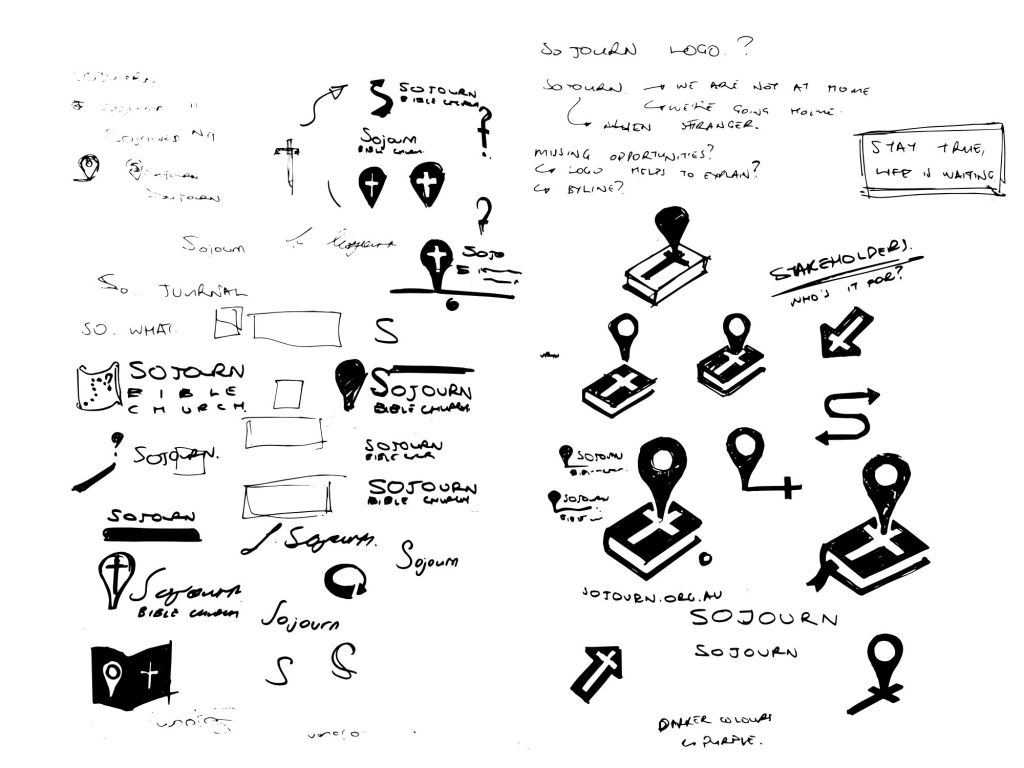 SOJOURN
BIBLE CHURCH
Sojourn
BIBLE CHURCH
SOJOURN
SOJOURN
SOJO
B
Sojourn
SO... JOURNAL
SO. WHAT.
S
SOJOURN
BIBLE
CHURCH
SOJOURN
BIBLE CHURCH
?
SOJOURN.
SOJOURN
BIBLE
SOJOURN
BIBLE CHURCH
SOJOURN
Sojourn.
Sojourn
Sojourn
BIBLE CHURCH
Sojourn
S
S
SOJOURN LOGO.?
SOJOURN. → WE ARE NOT AT HOME
↳ WE'RE GOING HOME.
↳ ALIEN STRANGER.
MISSING OPPORTUNITIES?
↳ LOGO HELPS TO EXPLAIN?
↳ BYLINE?
STAY TRUE,
LIFE IS WAITING
STAKEHOLDERS.
WHO'S IT FOR?
SOJOURN
SOJOURN
SOJOURN.ORG.AU
SOJOURN
SOJOURN
DARKER COLOURS
↳ PURPLE.